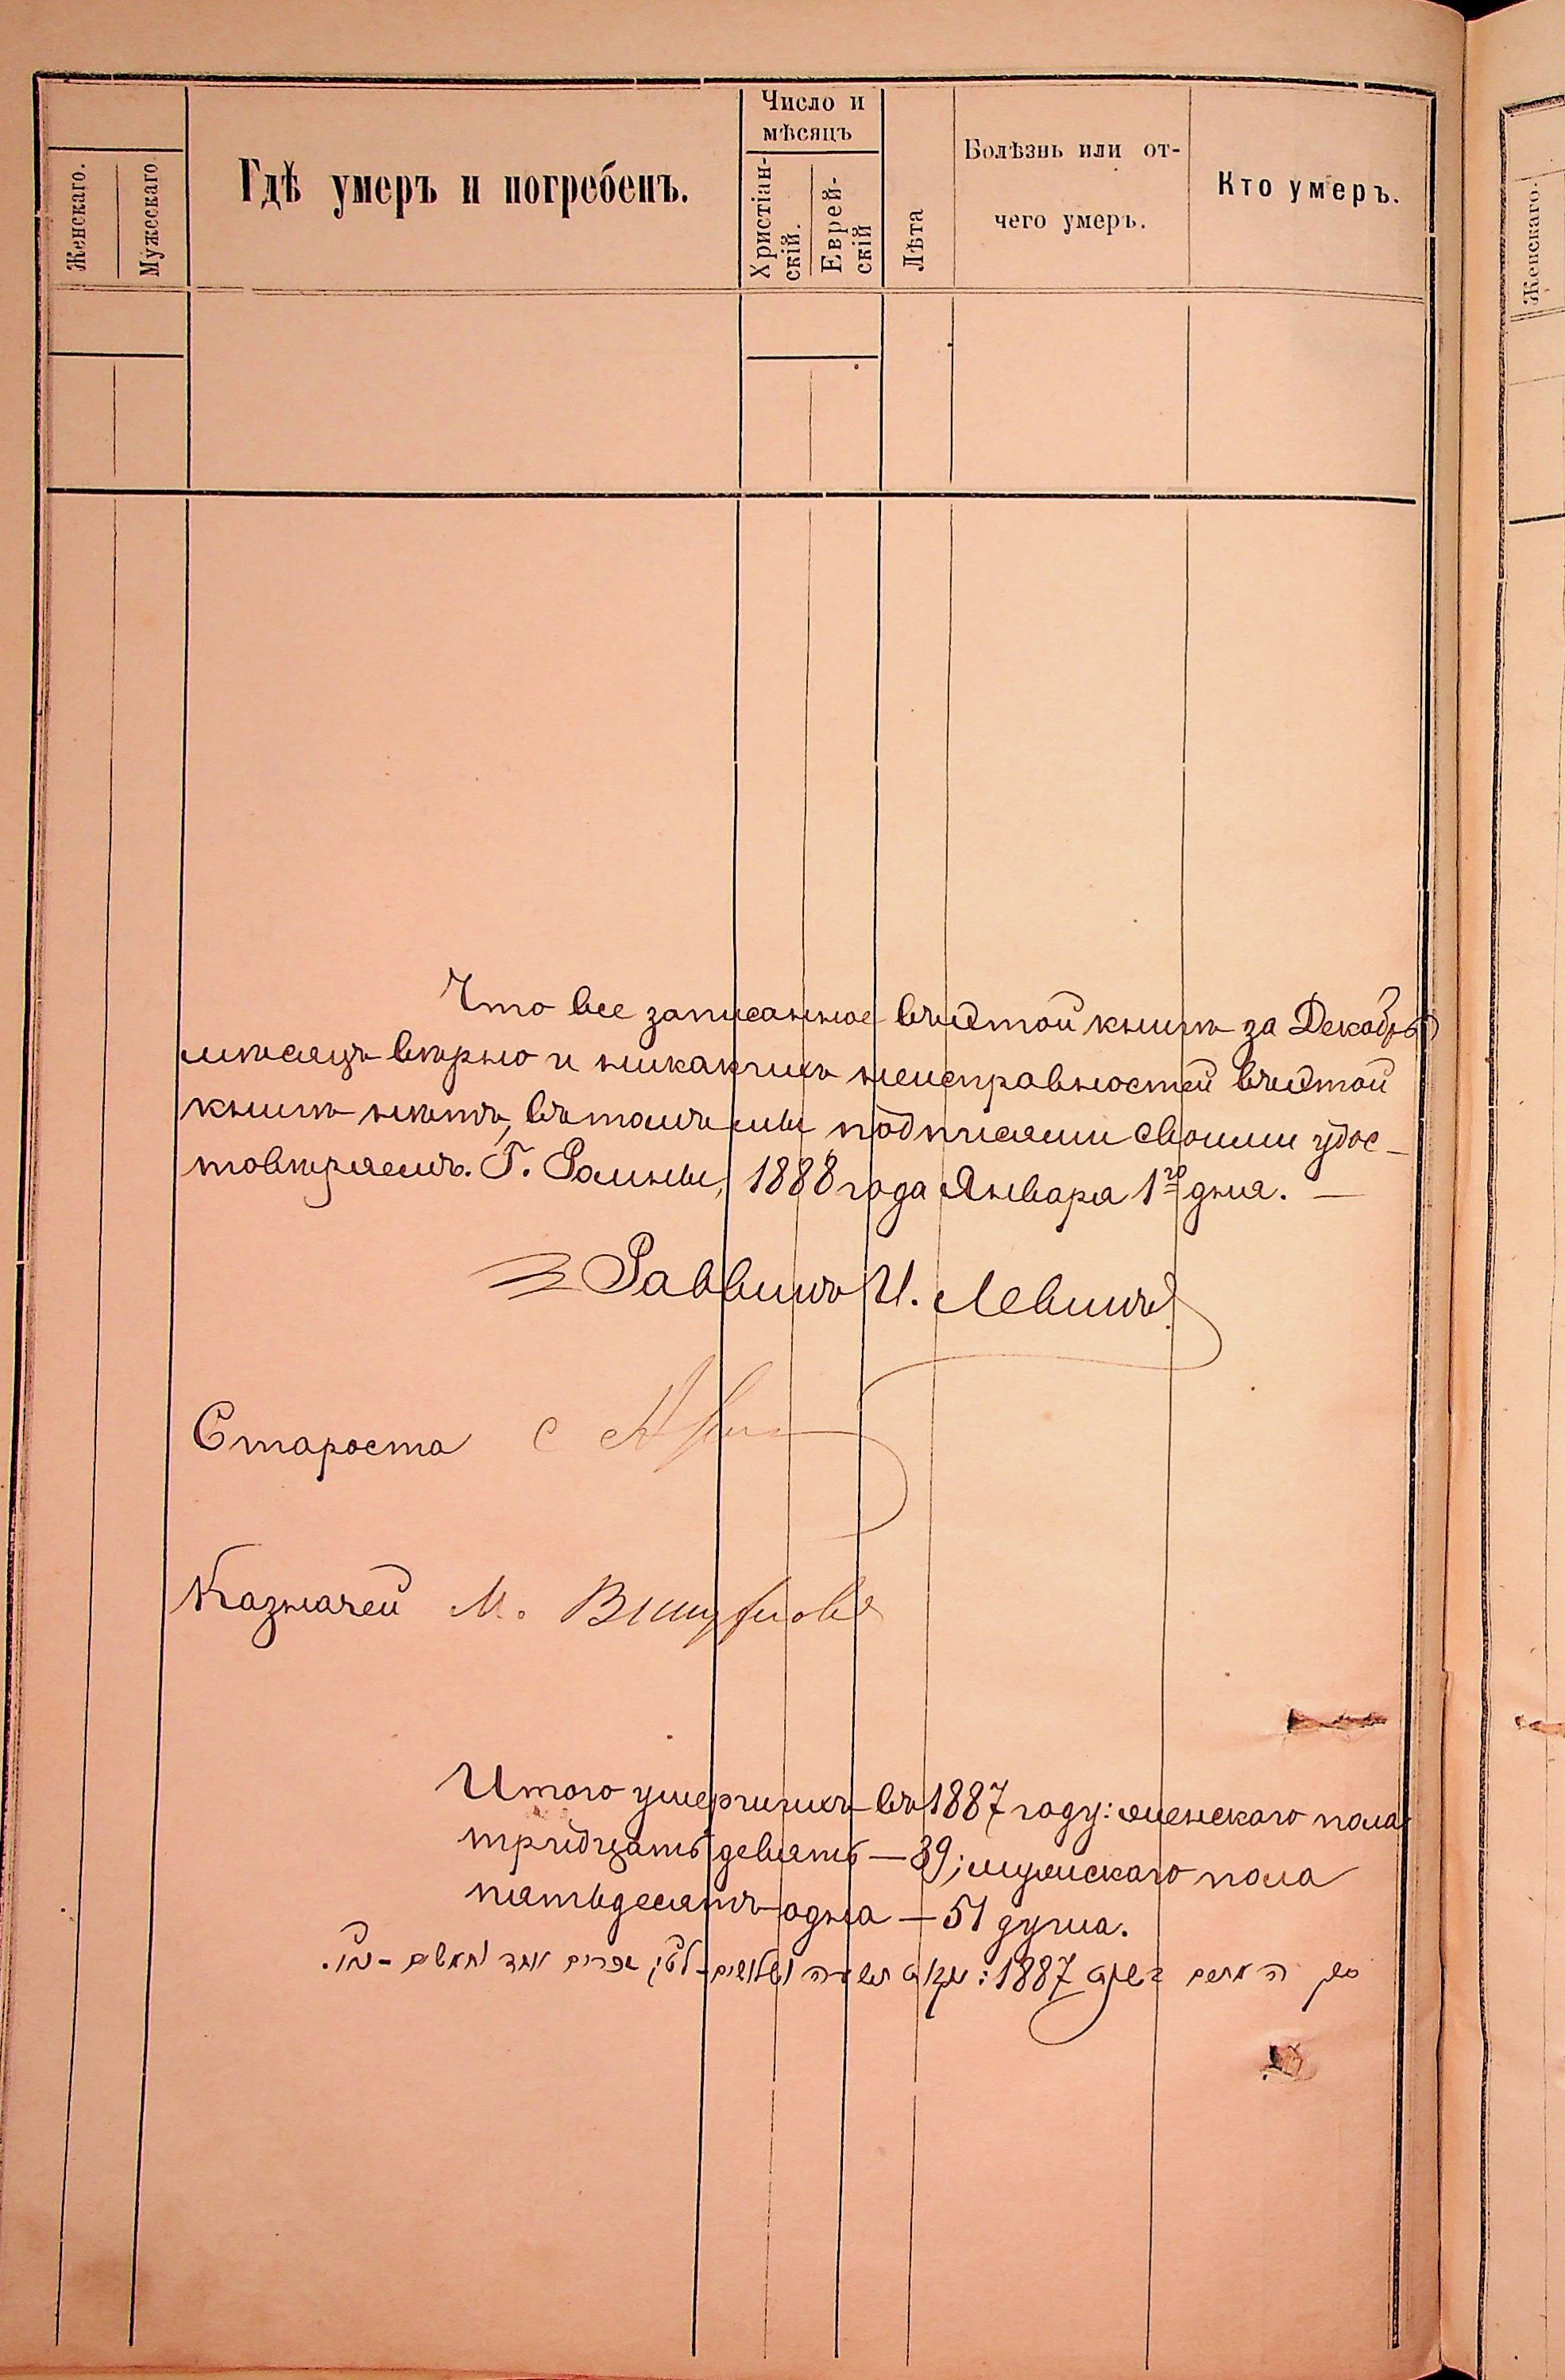 Женскаго.
Мужескаго
Гдѣ умеръ и погребенъ.
Число и
мѣсяцъ
Христіан-
скій.
Еврей-
скій
Лѣта
Болѣзнь или от-
чего умеръ.
Кто умеръ.
Что все записанное въ этой книгѣ за Декабрь
мѣсяцъ вѣрно и никакихъ неисправностей въ этой
книгѣ нѣтъ, въ томъ мы подписями своими удос-
товѣряемъ. Г. Ромны, 1888 года Января 1го дня. —
Раввинъ И. Левинъ
Староста С
Казначей М.
Итого умершихъ въ 1887 году: женскаго пола
тридцать девять — 39; мужискаго пола
пятьдесятъ одна — 51 душа.
1887 : נקבות תשעה ושלשים - זכרים אחד וחמשים - נ״א.
Женскаго.